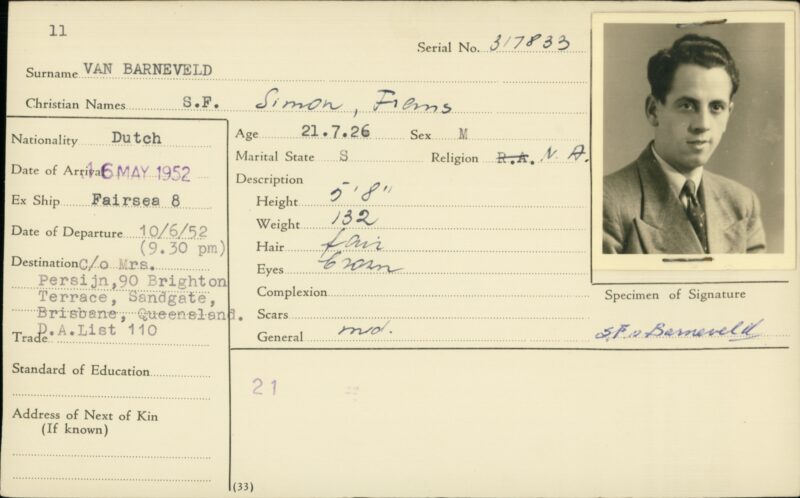 11
Serial No. 317833
Surname VAN BARNEVELD
Christian Names S.F. Simon, Frens
Nationality Dutch
Date of Arrival 16 MAY 1952
Ex Ship Fairsea 8
Date of Departure 10/6/52
(9.30 pm)
Destination C/o Mrs.
Persijn,90 Brighton
Terrace, Sandgate,
Brisbane, Queensland.
D.A.List 110
Trade
Standard of Education
Address of Next of Kin
(If known)
Age 21.7.26 Sex M
Marital State S Religion R.A. N.A.
Description
Height 5'8"
Weight 132
Hair fair
Eyes brown
Complexion
Scars
General
Specimen of Signature
S.F. v Barneveld
21
(33)